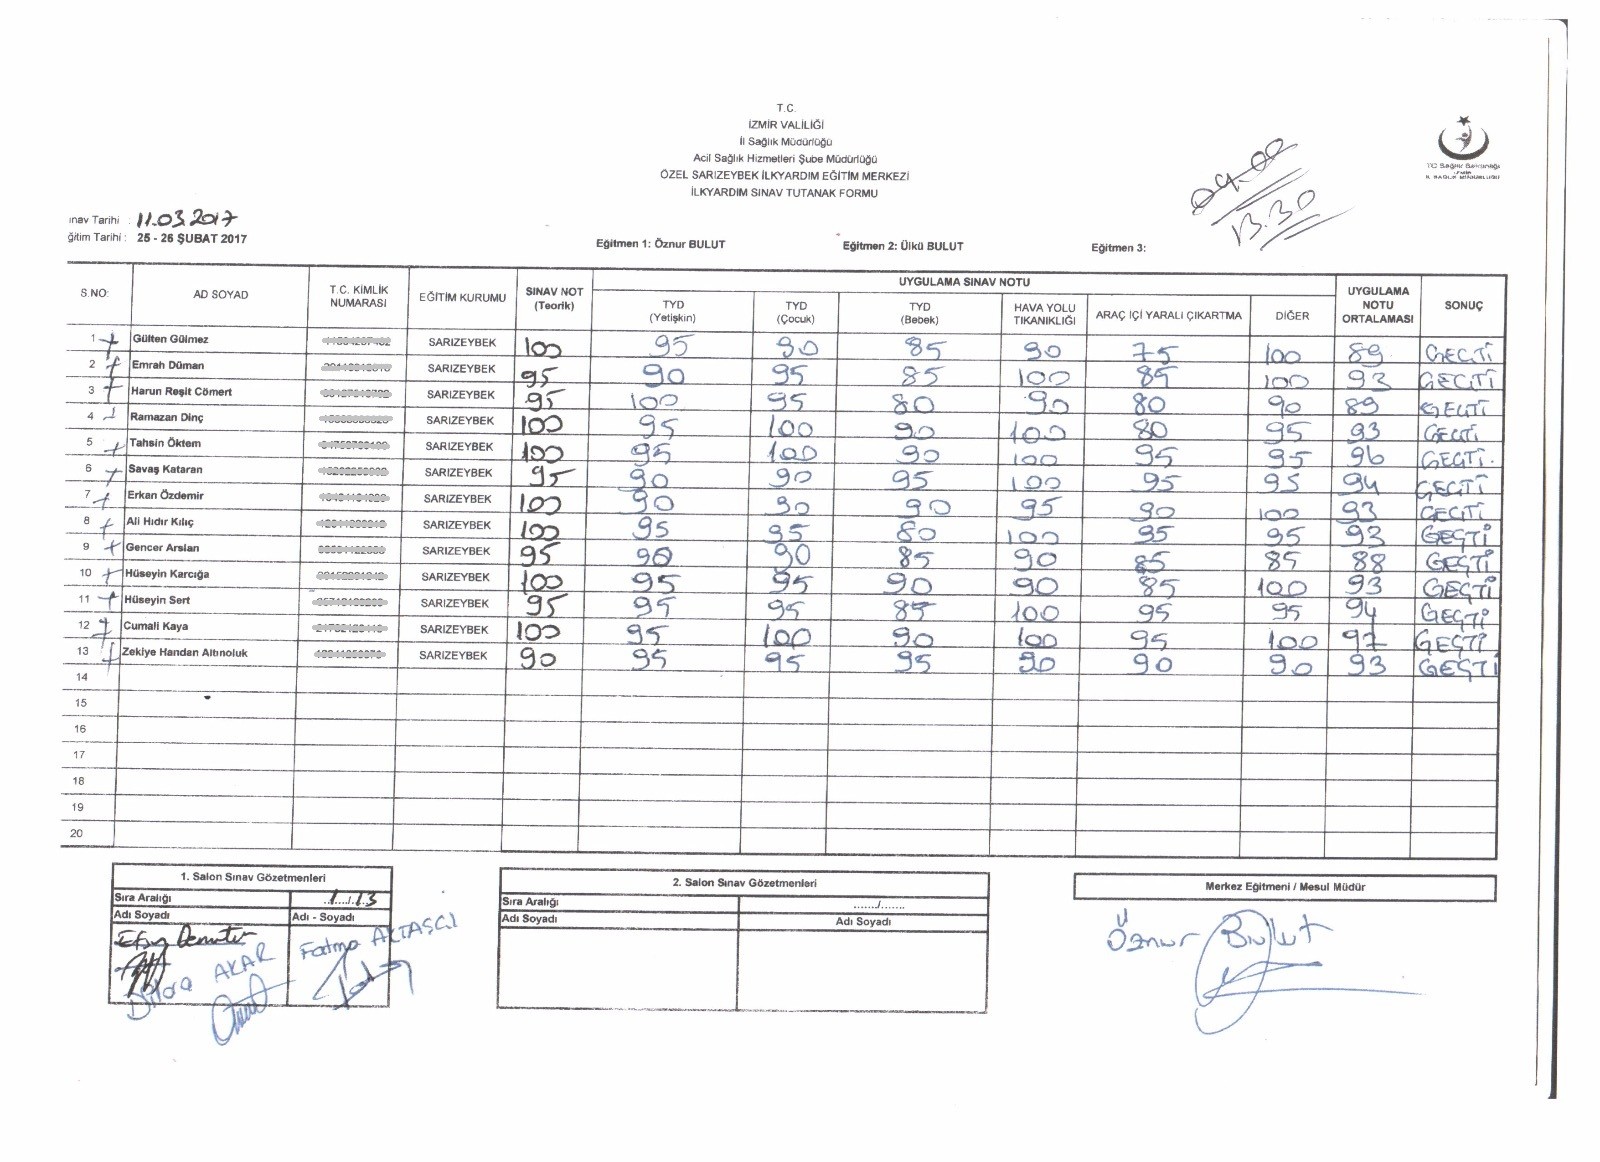 T.C.
İZMİR VALİLİĞİ
İl Sağlık Müdürlüğü
Acil Sağlık Hizmetleri Şube Müdürlüğü
ÖZEL SARIZEYBEK İLKYARDIM EĞİTİM MERKEZİ
İLKYARDIM SINAV TUTANAK FORMU
09-00
13.30
TC Sağlık Bakanlığı
İZMİR
İL SAĞLIK MÜDÜRLÜĞÜ
ınav Tarihi : 11.03.2017
ğitim Tarihi : 25 - 26 ŞUBAT 2017
Eğitmen 1: Öznur BULUT Eğitmen 2: Ülkü BULUT Eğitmen 3:
S.NO: AD SOYAD T.C. KİMLİK NUMARASI EĞİTİM KURUMU SINAV NOT (Teorik) UYGULAMA SINAV NOTU UYGULAMA NOTU ORTALAMASI SONUÇ
TYD (Yetişkin) TYD (Çocuk) TYD (Bebek) HAVA YOLU TIKANIKLIĞI ARAÇ İÇİ YARALI ÇIKARTMA DİĞER
1 + Gülten Gülmez SARIZEYBEK 100 95 90 85 90 75 100 89 GEÇTİ
2 + Emrah Düman SARIZEYBEK 95 90 95 85 100 85 100 93 GEÇTİ
3 + Harun Reşit Cömert SARIZEYBEK 95 100 95 80 90 80 90 89 GEÇTİ
4 + Ramazan Dinç SARIZEYBEK 100 95 100 90 100 80 95 93 GEÇTİ
5 + Tahsin Öktem SARIZEYBEK 100 95 100 90 100 95 95 96 GEÇTİ.
6 + Savaş Kataran SARIZEYBEK 95 90 90 95 100 95 95 94 GEÇTİ
7 + Erkan Özdemir SARIZEYBEK 100 90 90 90 95 90 100 93 GEÇTİ
8 + Ali Hıdır Kılıç SARIZEYBEK 100 95 95 80 100 95 95 93 GEÇTİ
9 + Gencer Arslan SARIZEYBEK 95 90 90 85 90 85 85 88 GEÇTİ
10 + Hüseyin Karcığa SARIZEYBEK 100 95 95 90 90 85 100 93 GEÇTİ
11 + Hüseyin Sert SARIZEYBEK 95 95 95 85 100 95 95 94 GEÇTİ
12 + Cumali Kaya SARIZEYBEK 100 95 100 90 100 95 100 97 GEÇTİ
13 + Zekiye Handan Altınoluk SARIZEYBEK 90 95 95 95 90 90 90 93 GEÇTİ
14
15
16
17
18
19
20
1. Salon Sınav Gözetmenleri
Sıra Aralığı ..1../..13
Adı Soyadı Adı - Soyadı
Dilara AKAR
Fatma AKTAŞÇI
2. Salon Sınav Gözetmenleri
Sıra Aralığı ....../.......
Adı Soyadı Adı Soyadı
Merkez Eğitmeni / Mesul Müdür
Öznur Bulut